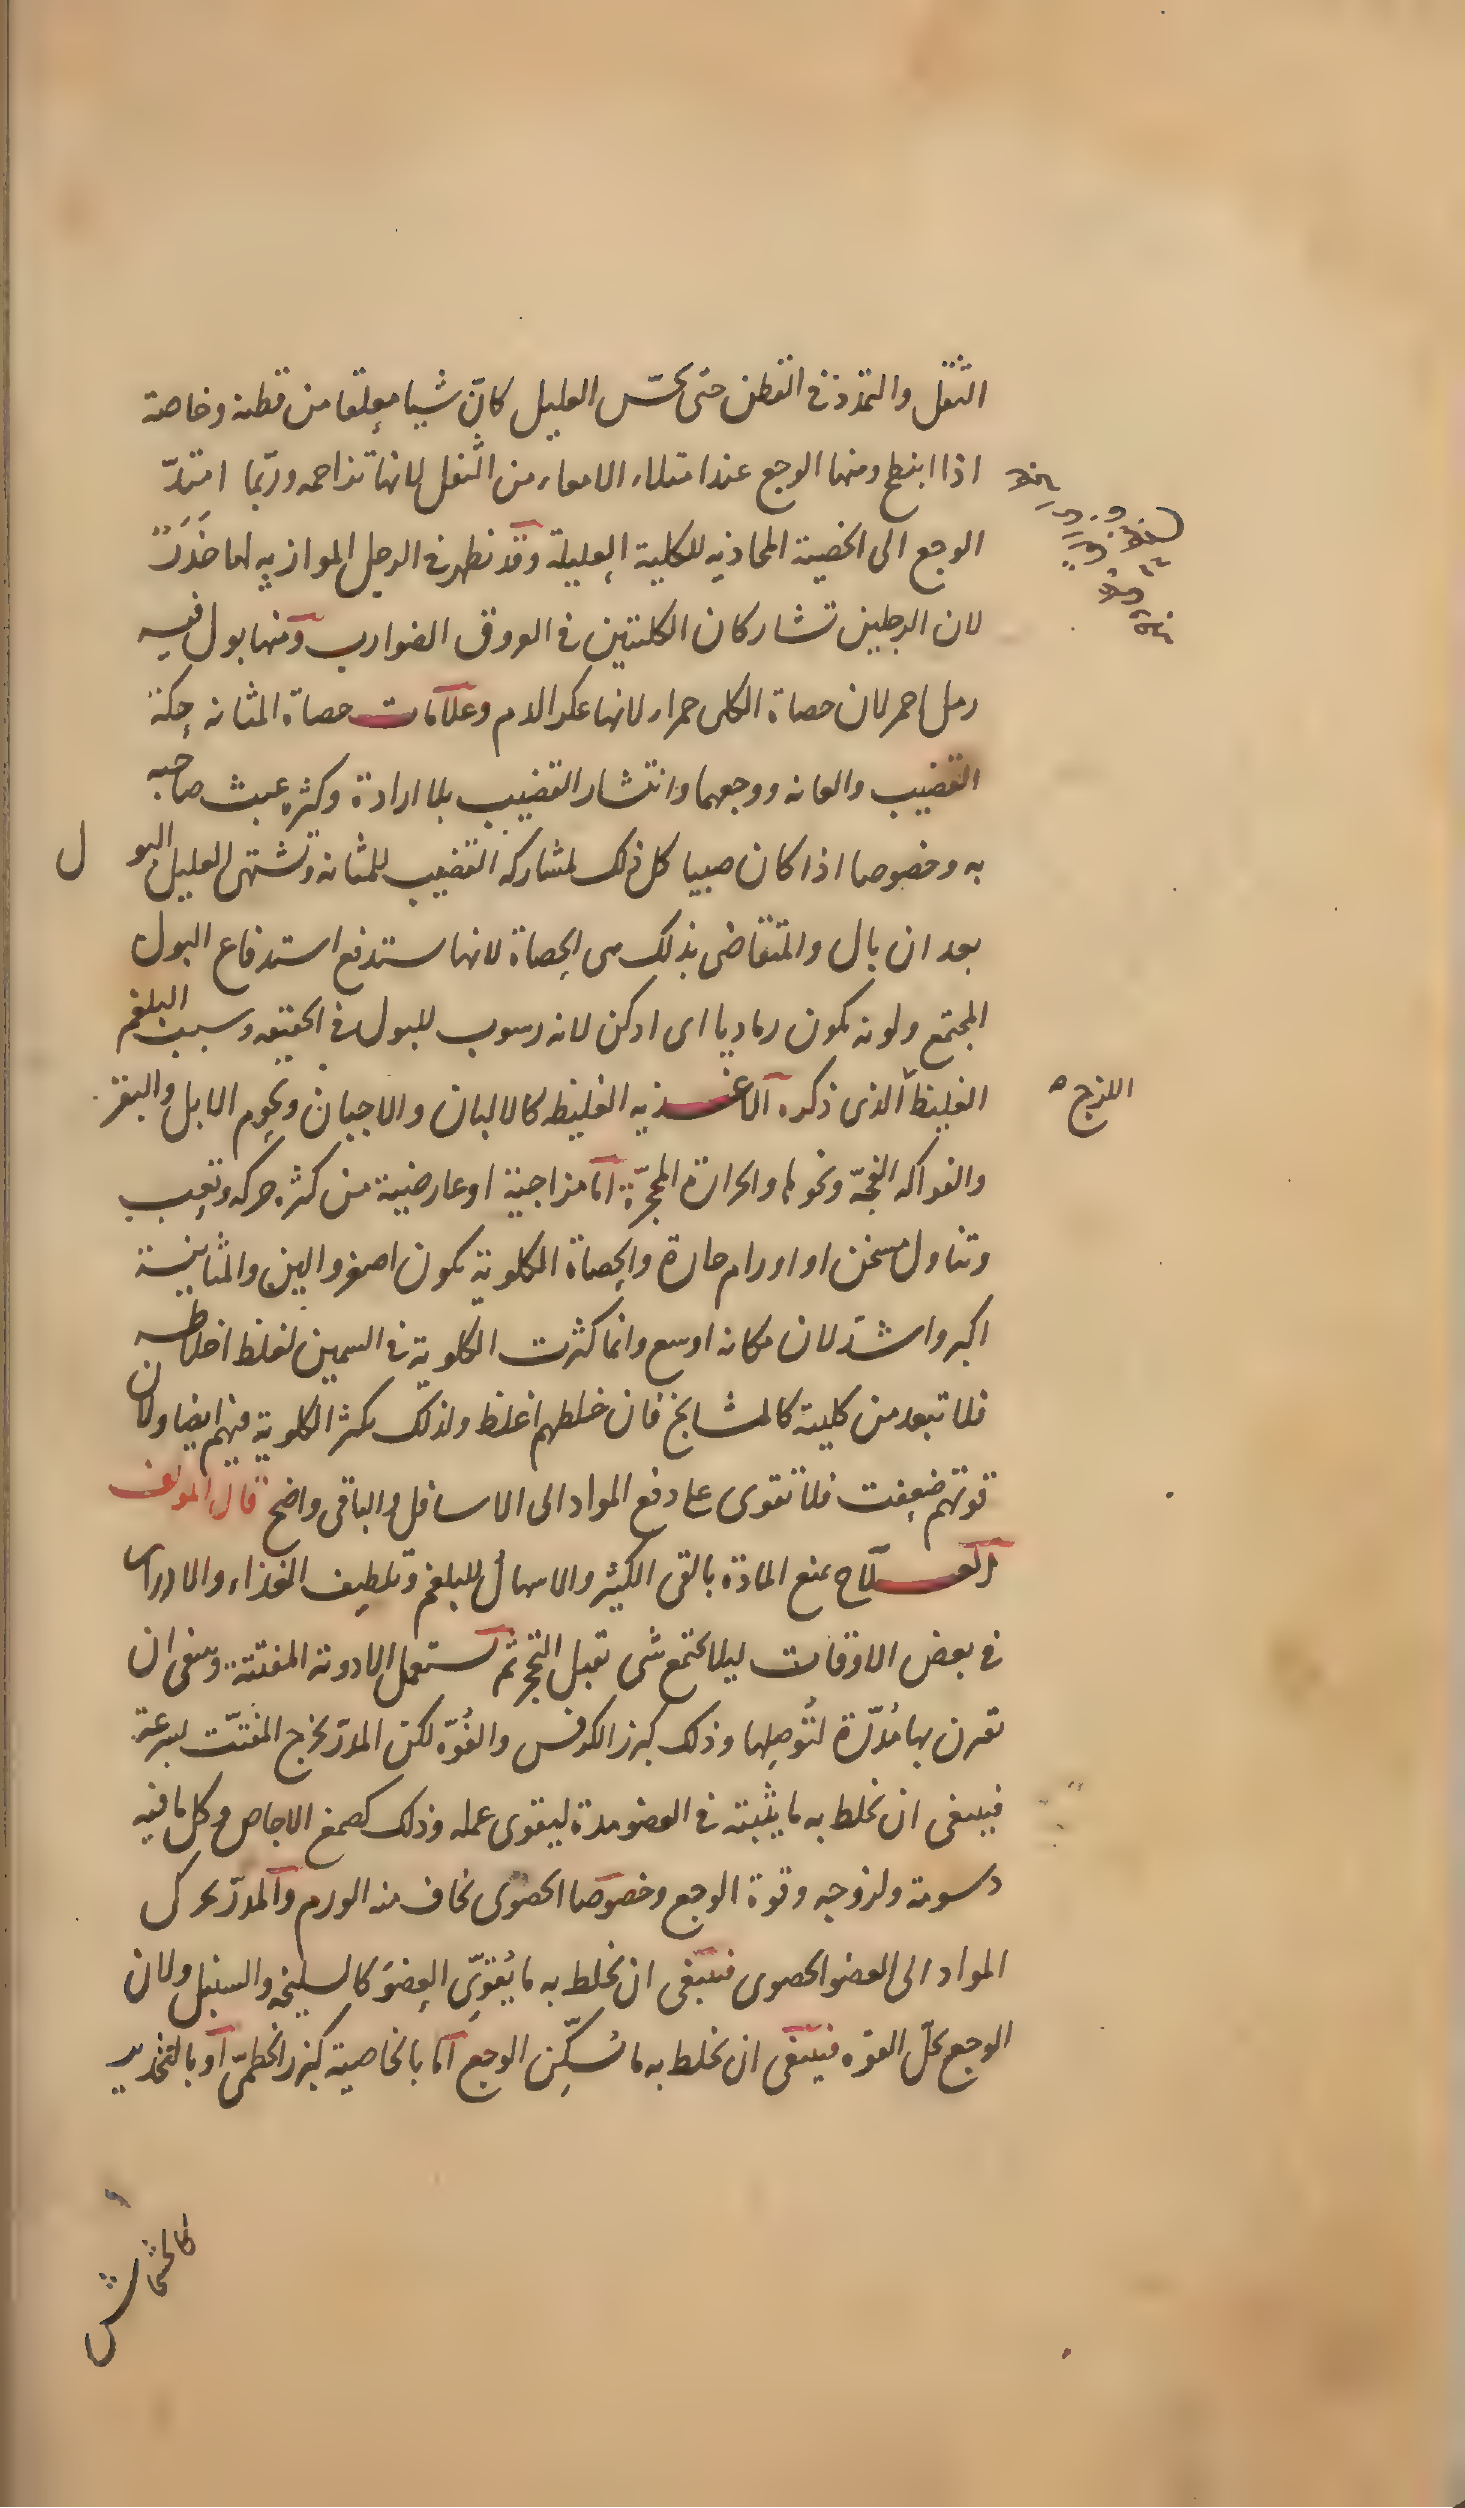 الثقل والتمدد فى القطن حتى يحسّ العليل كانّ شيا معلقا من قطنه وخاصة
اذا انبطح ومنها الوجع عند امتلاء الامعاء من الثفل لانها تزاحمه وربّما امتدّ
الوجع الى الخصية المحاذيه للكلية العليلة وقد تظهر فى الرجل الموازيه لها خَدَرٌ
لان الرجلين تشاركان الكليتين فى العروق الضوارب ومنها بول فيه
رمل احمر لان حصاة الكلى حمراء لانها عكر الدم وعلامات حصاة المثانه حِكة
القضيب والعانه ووجعهما وانتشار القضيب بلا ارادة وكثره عبث صاحبه
به وخصوصا اذا كان صبيا كل ذلك لمشاركة القضيب للمثانه وتشتهى العليل البول
بعد ان بال والمتقاضى بذلك هى الحصاة لانها ستدفع استدفاع البول
المجتمع ولونه يكون رماديا اى ادكن لانه رسوب للبول فى الحقيقه وسبب البلغم
الغليظ الذى ذكره الاغذيه الغليظه كالالبان والاجبان ولحوم الابل والبقر
اللزج
والفواكه الفجّه ونحوها والحرارة المحجّرة اما مزاجية او عارضية من كثره حركه وتعب
وتناول مسخن او اورام حارة والحصاة الكلوية يكون اصغر والين والمثانية
اكبر واشدّ لان مكانه اوسع وانما كثرت الكلوية فى السمين لغلظ اخلاطه
فلا تبعد من كليته كالمشايخ فان خلطهم اغلظ ولذلك يكثر الكلوية فيهم ايضا ولان
قوتهم ضعفت فلا تقوى على دفع المواد الى الاسافل والباقى واضح قال المولف
العلاج يمنع المادة بالقى الكثير والاسهال للبلغم وتلطيف الغذاء والادرار
فى بعض الاوقات ليلا يجتمع شى تقبل التحجر ثم تستعمل الادوية المفتتة وينبغى ان
تقرن بها مُدرّة لتُوصِلها وذلك كبزر الكرفس والفُوّه لكن المدرّ يخرج المفتّت بسرعة
فينبغى ان يخلط به ما يثبته فى العضو مدة ليقوى عمله وذلك كصمغ الاجاص وكل ما فيه
دسومة ولزوجه وقوة الوجع وخصوصا الحصوى يخاف منه الورم والمدرّ يحرك
المواد الى العضو الحصوى فينبغى ان يخلط به ما يُقوِّى العِضوَ كالسليخه والسنبل ولان
الوجع يحلّ القوّه فينبغى ان يخلط به ما يُسكِّن الوجع اما بالخاصية كبزر الخطمىّ او بالتخدير
كالخشخاش